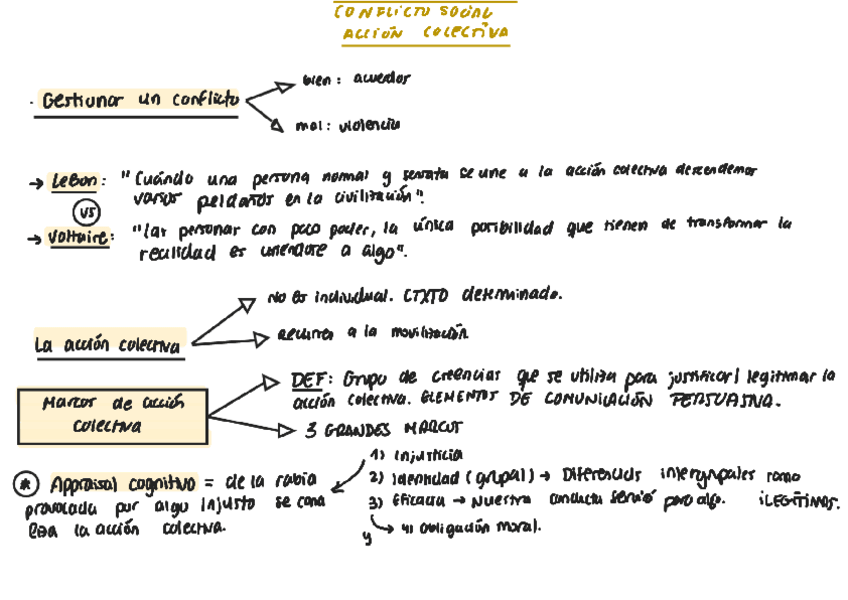 CONFLICTO SOCIAL
ACCIÓN COLECTIVA
bien: acuerdos
· Gestionar un conflicto
mal: violencia
→ Lebon: "Cuándo una persona normal y sensata se une a la acción colectiva descendemos
varios peldaños en la civilización".
VS
→ Voltaire: "las personas con poco poder, la única posibilidad que tienen de transformar la
realidad es uniendose a algo".
No es individual. CTXTO determinado.
La acción colectiva
Recurres a la movilización
DEF: Grupo de creencias que se utiliza para justificar/legitimar la
acción colectiva. ELEMENTOS DE COMUNICACIÓN PERSUASIVA.
Marcos de acción
colectiva
3 GRANDES MARCOS
1) Injusticia
* Appraisal cognitivo = de la rabia
2) Identidad (grupal) → Diferencias intergrupales como
provocada por algo injusto se
3) Eficacia → Nuestra conducta servirá para algo. ILEGÍTIMAS.
la acción colectiva.
y → 4) Obligación moral.